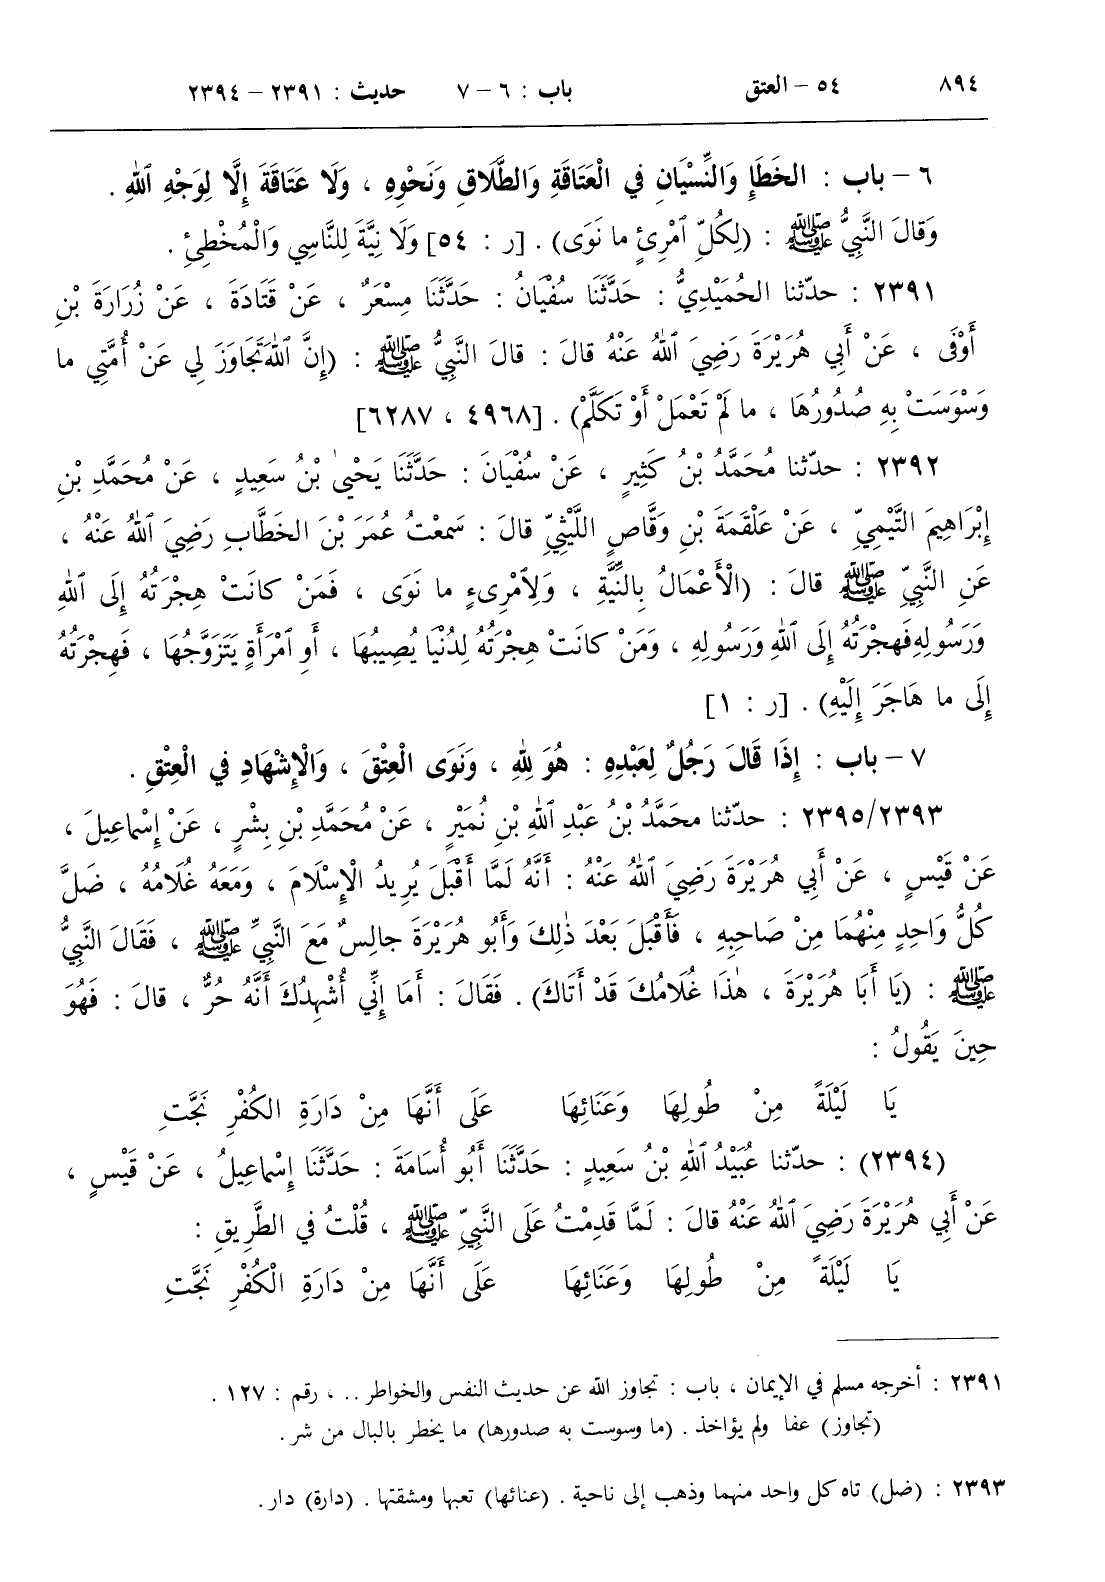 ٨٩٤ ٥٤ – العتق باب : ٦ – ٧ حديث : ٢٣٩١ – ٢٣٩٤
٦ – باب : الخَطَإِ وَالنِّسْيَانِ في الْعَتَاقَةِ وَالطَّلَاقِ وَنَحْوِهِ ، وَلَا عَتَاقَةَ إِلَّا لِوَجْهِ ٱللهِ .
وَقالَ النَّبِيُّ ﷺ : (لِكُلِّ ٱمْرِئٍ ما نَوَى) . [ر : ٥٤] وَلَا نِيَّةَ لِلنَّاسِي وَالْمُخْطِئِ .
٢٣٩١ : حدّثنا الحُمَيْدِيُّ : حَدَّثَنَا سُفْيَانُ : حَدَّثَنَا مِسْعَرٌ ، عَنْ قَتَادَةَ ، عَنْ زُرَارَةَ بْنِ
أَوْفَى ، عَنْ أَبِي هُرَيْرَةَ رَضِيَ ٱللهُ عَنْهُ قالَ : قالَ النَّبِيُّ ﷺ : (إِنَّ ٱللهَ تَجَاوَزَ لِي عَنْ أُمَّتِي ما
وَسْوَسَتْ بِهِ صُدُورُهَا ، ما لَمْ تَعْمَلْ أَوْ تَكَلَّمْ) . [٤٩٦٨ ، ٦٢٨٧]
٢٣٩٢ : حدّثنا مُحَمَّدُ بْنُ كَثِيرٍ ، عَنْ سُفْيَانَ : حَدَّثَنَا يَحْيىٰ بْنُ سَعِيدٍ ، عَنْ مُحَمَّدِ بْنِ
إِبْرَاهِيمَ التَّيْمِيِّ ، عَنْ عَلْقَمَةَ بْنِ وَقَّاصٍ اللَّيْثِيِّ قالَ : سَمِعْتُ عُمَرَ بْنَ الخَطَّابِ رَضِيَ ٱللهُ عَنْهُ ،
عَنِ النَّبِيِّ ﷺ قالَ : (الْأَعْمَالُ بِالنِّيَّةِ ، وَلِٱمْرِىءٍ ما نَوَى ، فَمَنْ كانَتْ هِجْرَتُهُ إِلَى ٱللهِ
وَرَسُولِهِ فَهِجْرَتُهُ إِلَى ٱللهِ وَرَسُولِهِ ، وَمَنْ كانَتْ هِجْرَتُهُ لِدُنْيَا يُصِيبُهَا ، أَوِ ٱمْرَأَةٍ يَتَزَوَّجُهَا ، فَهِجْرَتُهُ
إِلَى ما هَاجَرَ إِلَيْهِ) . [ر : ١]
٧ – باب : إِذَا قَالَ رَجُلٌ لِعَبْدِهِ : هُوَ لِلّٰهِ ، وَنَوَى الْعِتْقَ ، وَالْإِشْهَادِ في الْعِتْقِ .
٢٣٩٥/٢٣٩٣ : حدّثنا محَمَّدُ بْنُ عَبْدِ ٱللهِ بْنِ نُمَيْرٍ ، عَنْ مُحَمَّدِ بْنِ بِشْرٍ ، عَنْ إِسْماعِيلَ ،
عَنْ قَيْسٍ ، عَنْ أَبِي هُرَيْرَةَ رَضِيَ ٱللهُ عَنْهُ : أَنَّهُ لَمَّا أَقْبَلَ يُرِيدُ الْإِسْلَامَ ، وَمَعَهُ غُلَامُهُ ، ضَلَّ
كُلُّ وَاحِدٍ مِنْهُمَا مِنْ صَاحِبِهِ ، فَأَقْبَلَ بَعْدَ ذٰلِكَ وَأَبُو هُرَيْرَةَ جالِسٌ مَعَ النَّبِيِّ ﷺ ، فَقَالَ النَّبِيُّ
ﷺ : (يَا أَبَا هُرَيْرَةَ ، هٰذَا غُلَامُكَ قَدْ أَتَاكَ) . فَقَالَ : أَمَا إِنِّي أُشْهِدُكَ أَنَّهُ حُرٌّ ، قالَ : فَهُوَ
حِينَ يَقُولُ :
يَا لَيْلَةً مِنْ طُولِهَا وَعَنَائِهَا عَلَى أَنَّهَا مِنْ دَارَةِ الكُفْرِ نَجَّتِ
(٢٣٩٤) : حدّثنا عُبَيْدُ ٱللهِ بْنُ سَعِيدٍ : حَدَّثَنَا أَبُو أُسَامَةَ : حَدَّثَنَا إِسْماعِيلُ ، عَنْ قَيْسٍ ،
عَنْ أَبِي هُرَيْرَةَ رَضِيَ ٱللهُ عَنْهُ قالَ : لَمَّا قَدِمْتُ عَلَى النَّبِيِّ ﷺ ، قُلْتُ في الطَّرِيقِ :
يَا لَيْلَةً مِنْ طُولِهَا وَعَنَائِهَا عَلَى أَنَّهَا مِنْ دَارَةِ الْكُفْرِ نَجَّتِ
٢٣٩١ : أخرجه مسلم في الإيمان ، باب : تجاوز الله عن حديث النفس والخواطر .. ، رقم : ١٢٧ .
(تجاوز) عفا ولم يؤاخذ . (ما وسوست به صدورها) ما يخطر بالبال من شر .
٢٣٩٣ : (ضل) تاه كل واحد منهما وذهب إلى ناحية . (عنائها) تعبها ومشقتها . (دارة) دار .